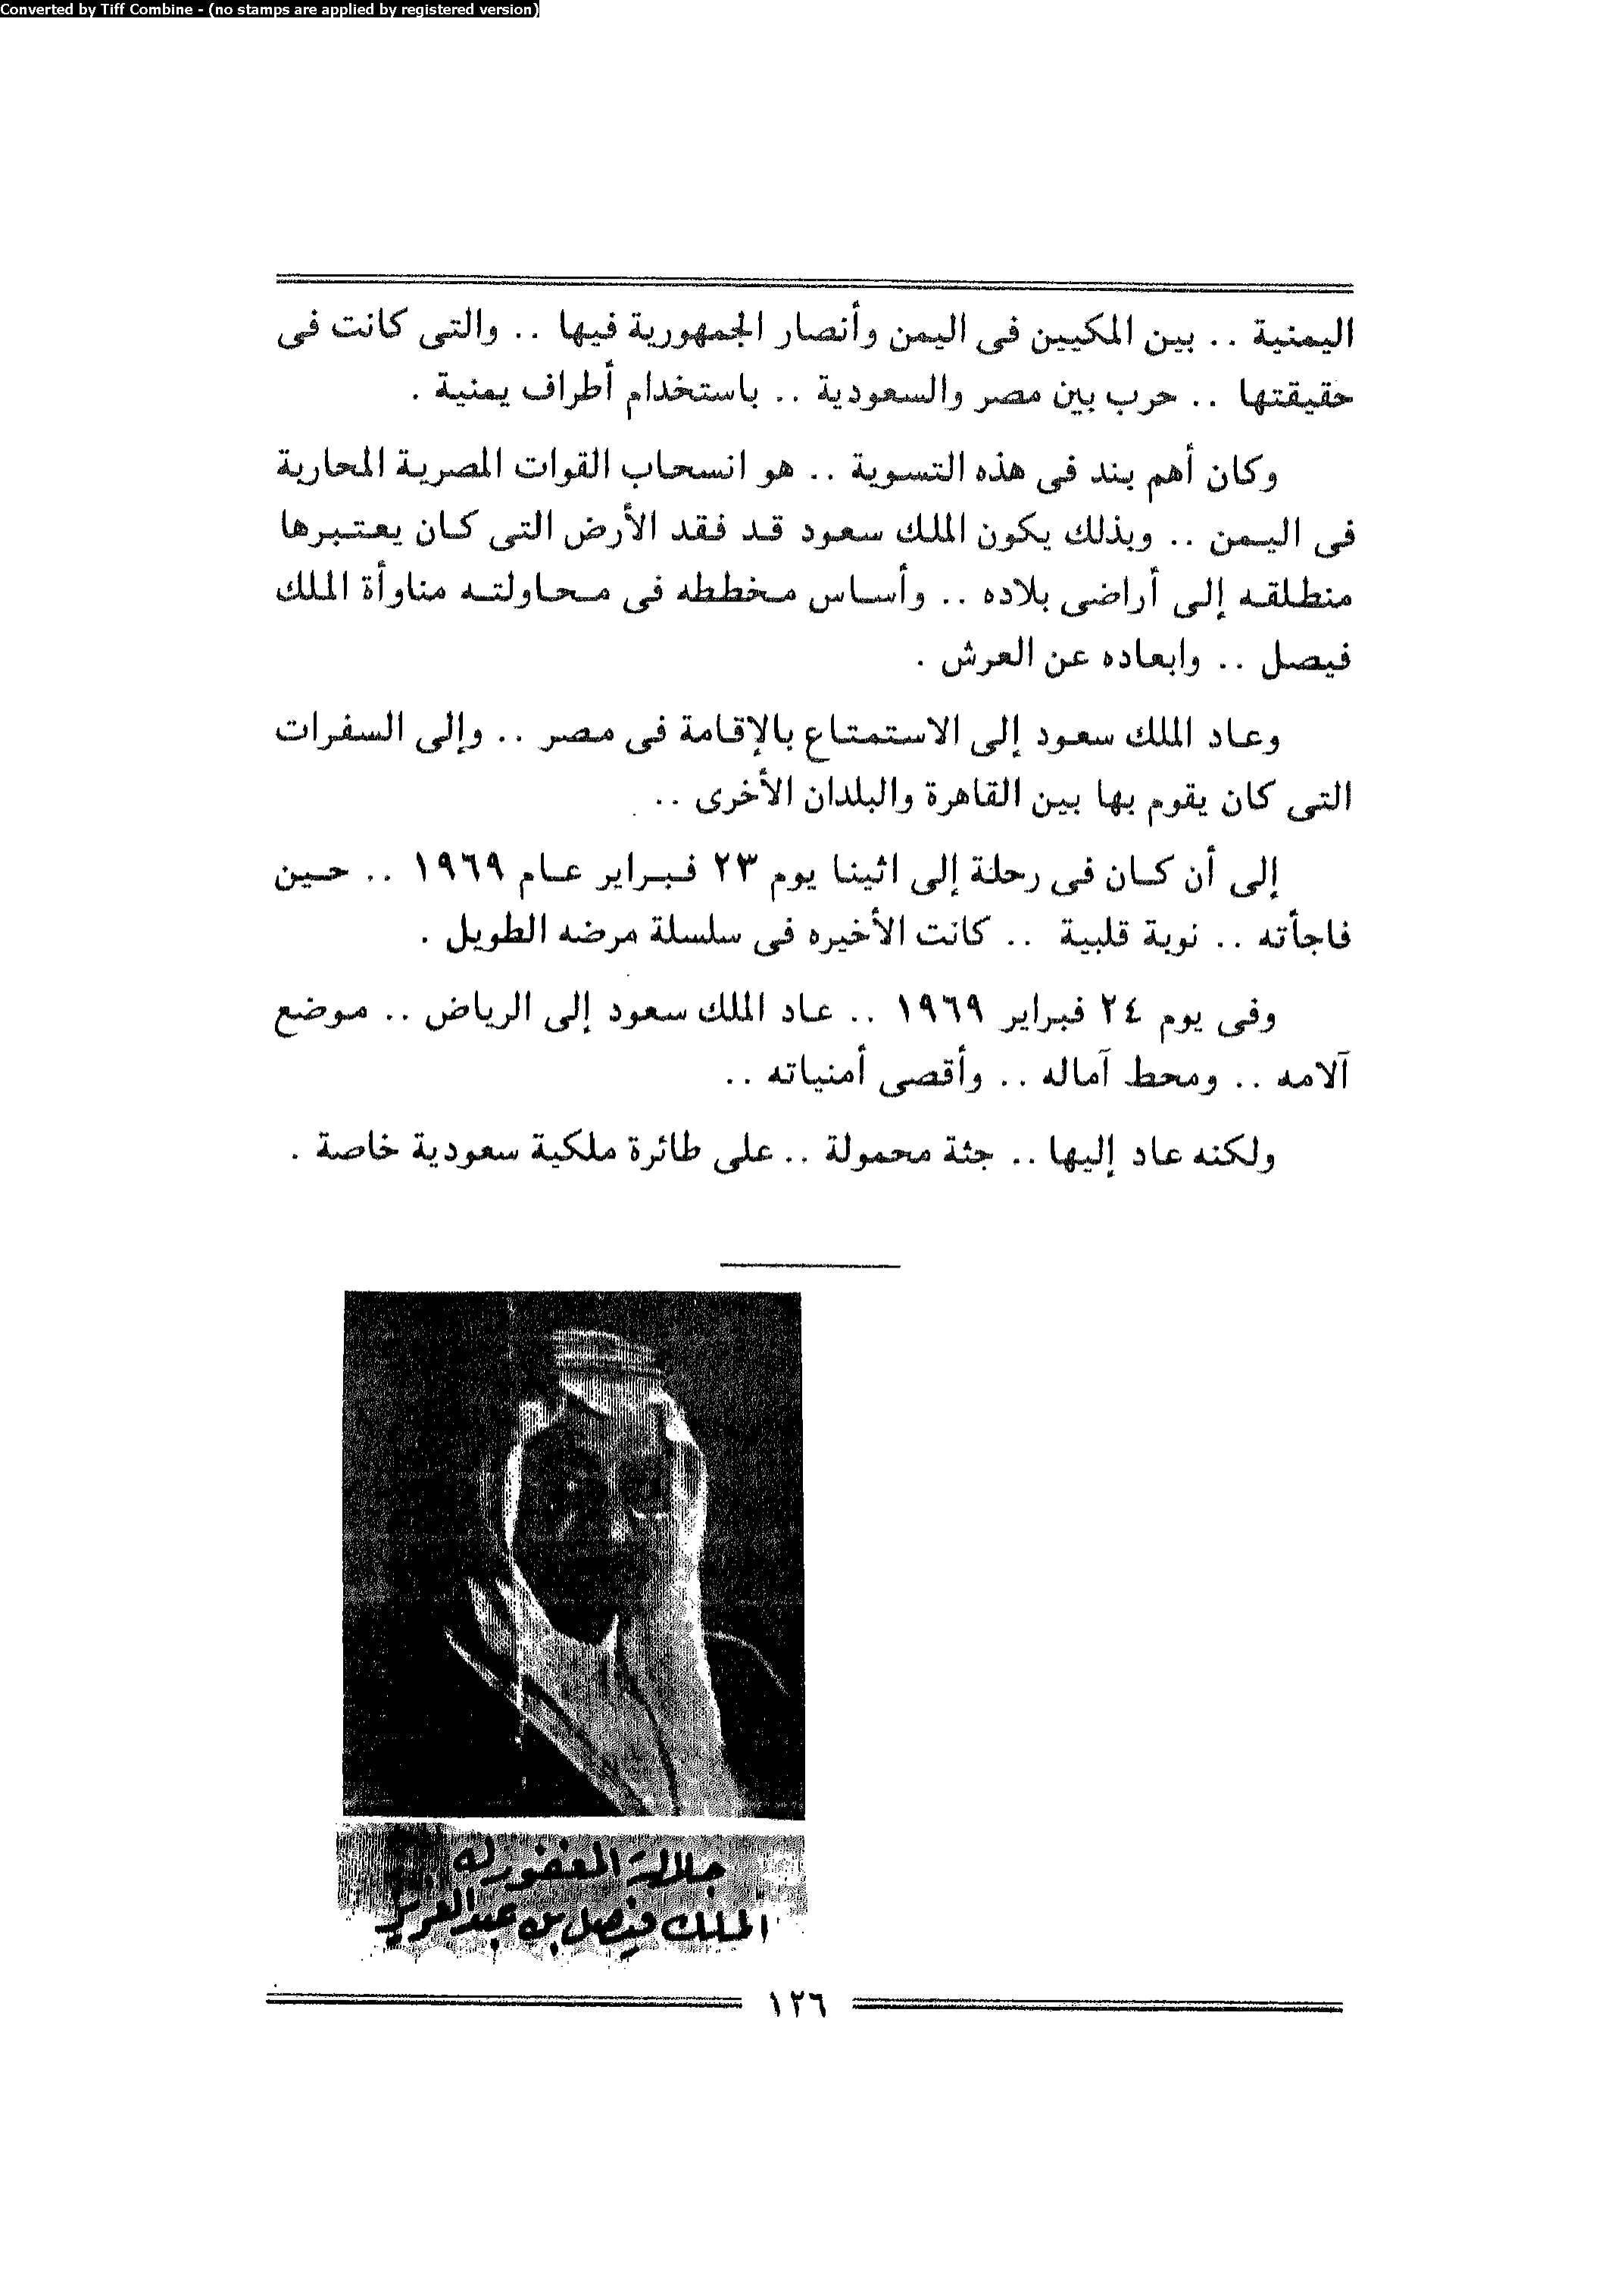 Converted by Tiff Combine - (no stamps are applied by registered version)
اليمنية .. بين المكيين فى اليمن وأنصار الجمهورية فيها .. والتى كانت فى
حقيقتها .. حرب بين مصر والسعودية .. باستخدام أطراف يمنية .
وكان أهم بند فى هذه التسوية .. هو انسحاب القوات المصرية المحاربة
فى اليمن .. وبذلك يكون الملك سعود قد فقد الأرض التى كان يعتبرها
منطلقه إلى أراضى بلاده .. وأساس مخططه فى محاولته مناوأة الملك
فيصل .. وابعاده عن العرش .
وعاد الملك سعود إلى الاستمتاع بالإقامة فى مصر .. وإلى السفرات
التى كان يقوم بها بين القاهرة والبلدان الأخرى ..
إلى أن كان فى رحلة إلى اثينا يوم ٢٣ فبراير عام ١٩٦٩ .. حين
فاجأته .. نوبة قلبية .. كانت الأخيره فى سلسلة مرضه الطويل .
وفى يوم ٢٤ فبراير ١٩٦٩ .. عاد الملك سعود إلى الرياض .. موضع
آلامه .. ومحط آماله .. وأقصى أمنياته ..
ولكنه عاد إليها .. جثة محمولة .. على طائرة ملكية سعودية خاصة .
جلالة المغفور له
الملك فيصل بن عبد العزيز
١٢٦